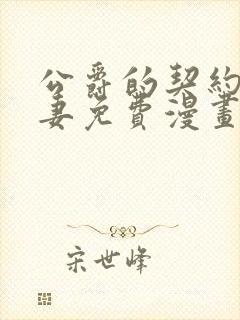 公爵的契約
妻免費漫畫
宋世峰